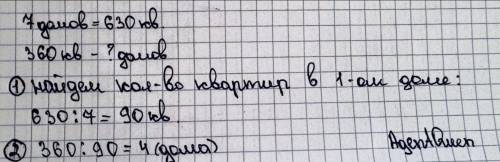 7 домов = 630 кв.
360 кв – ? домов
① найдем кол-во квартир в 1-ом доме:
630 : 7 = 90 кв
② 360 : 90 = 4 (дома)
AgentQuen